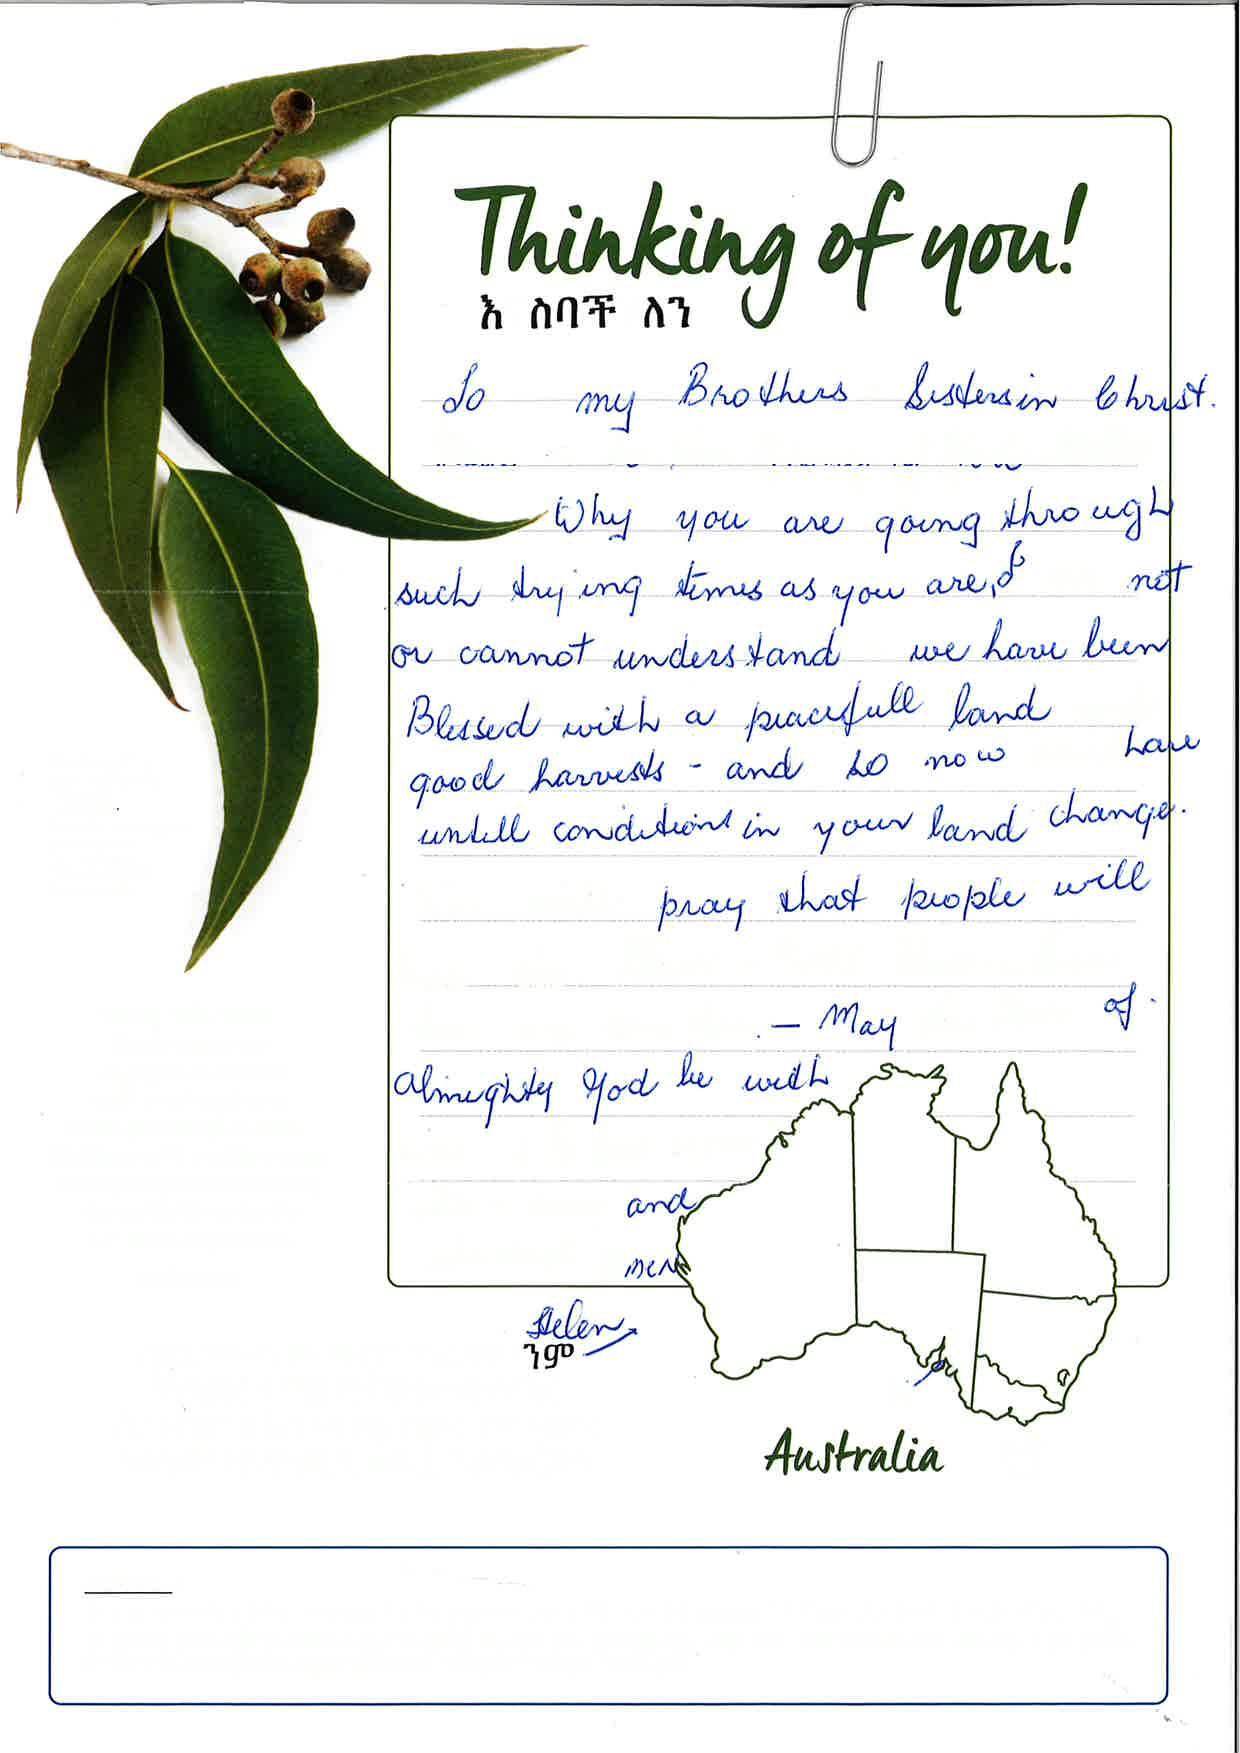 Thinking of you!
እ ስባች ለን
To my Brothers Sisters in Christ.
Why you are going through
such trying times as you are, not
or cannot understand we have been
Blessed with a peacefull land
good harvests - and so now have
untill conditions in your land change.
pray that people will
of
- May
Almighty God be with
and
men
Helen
ንም
Australia